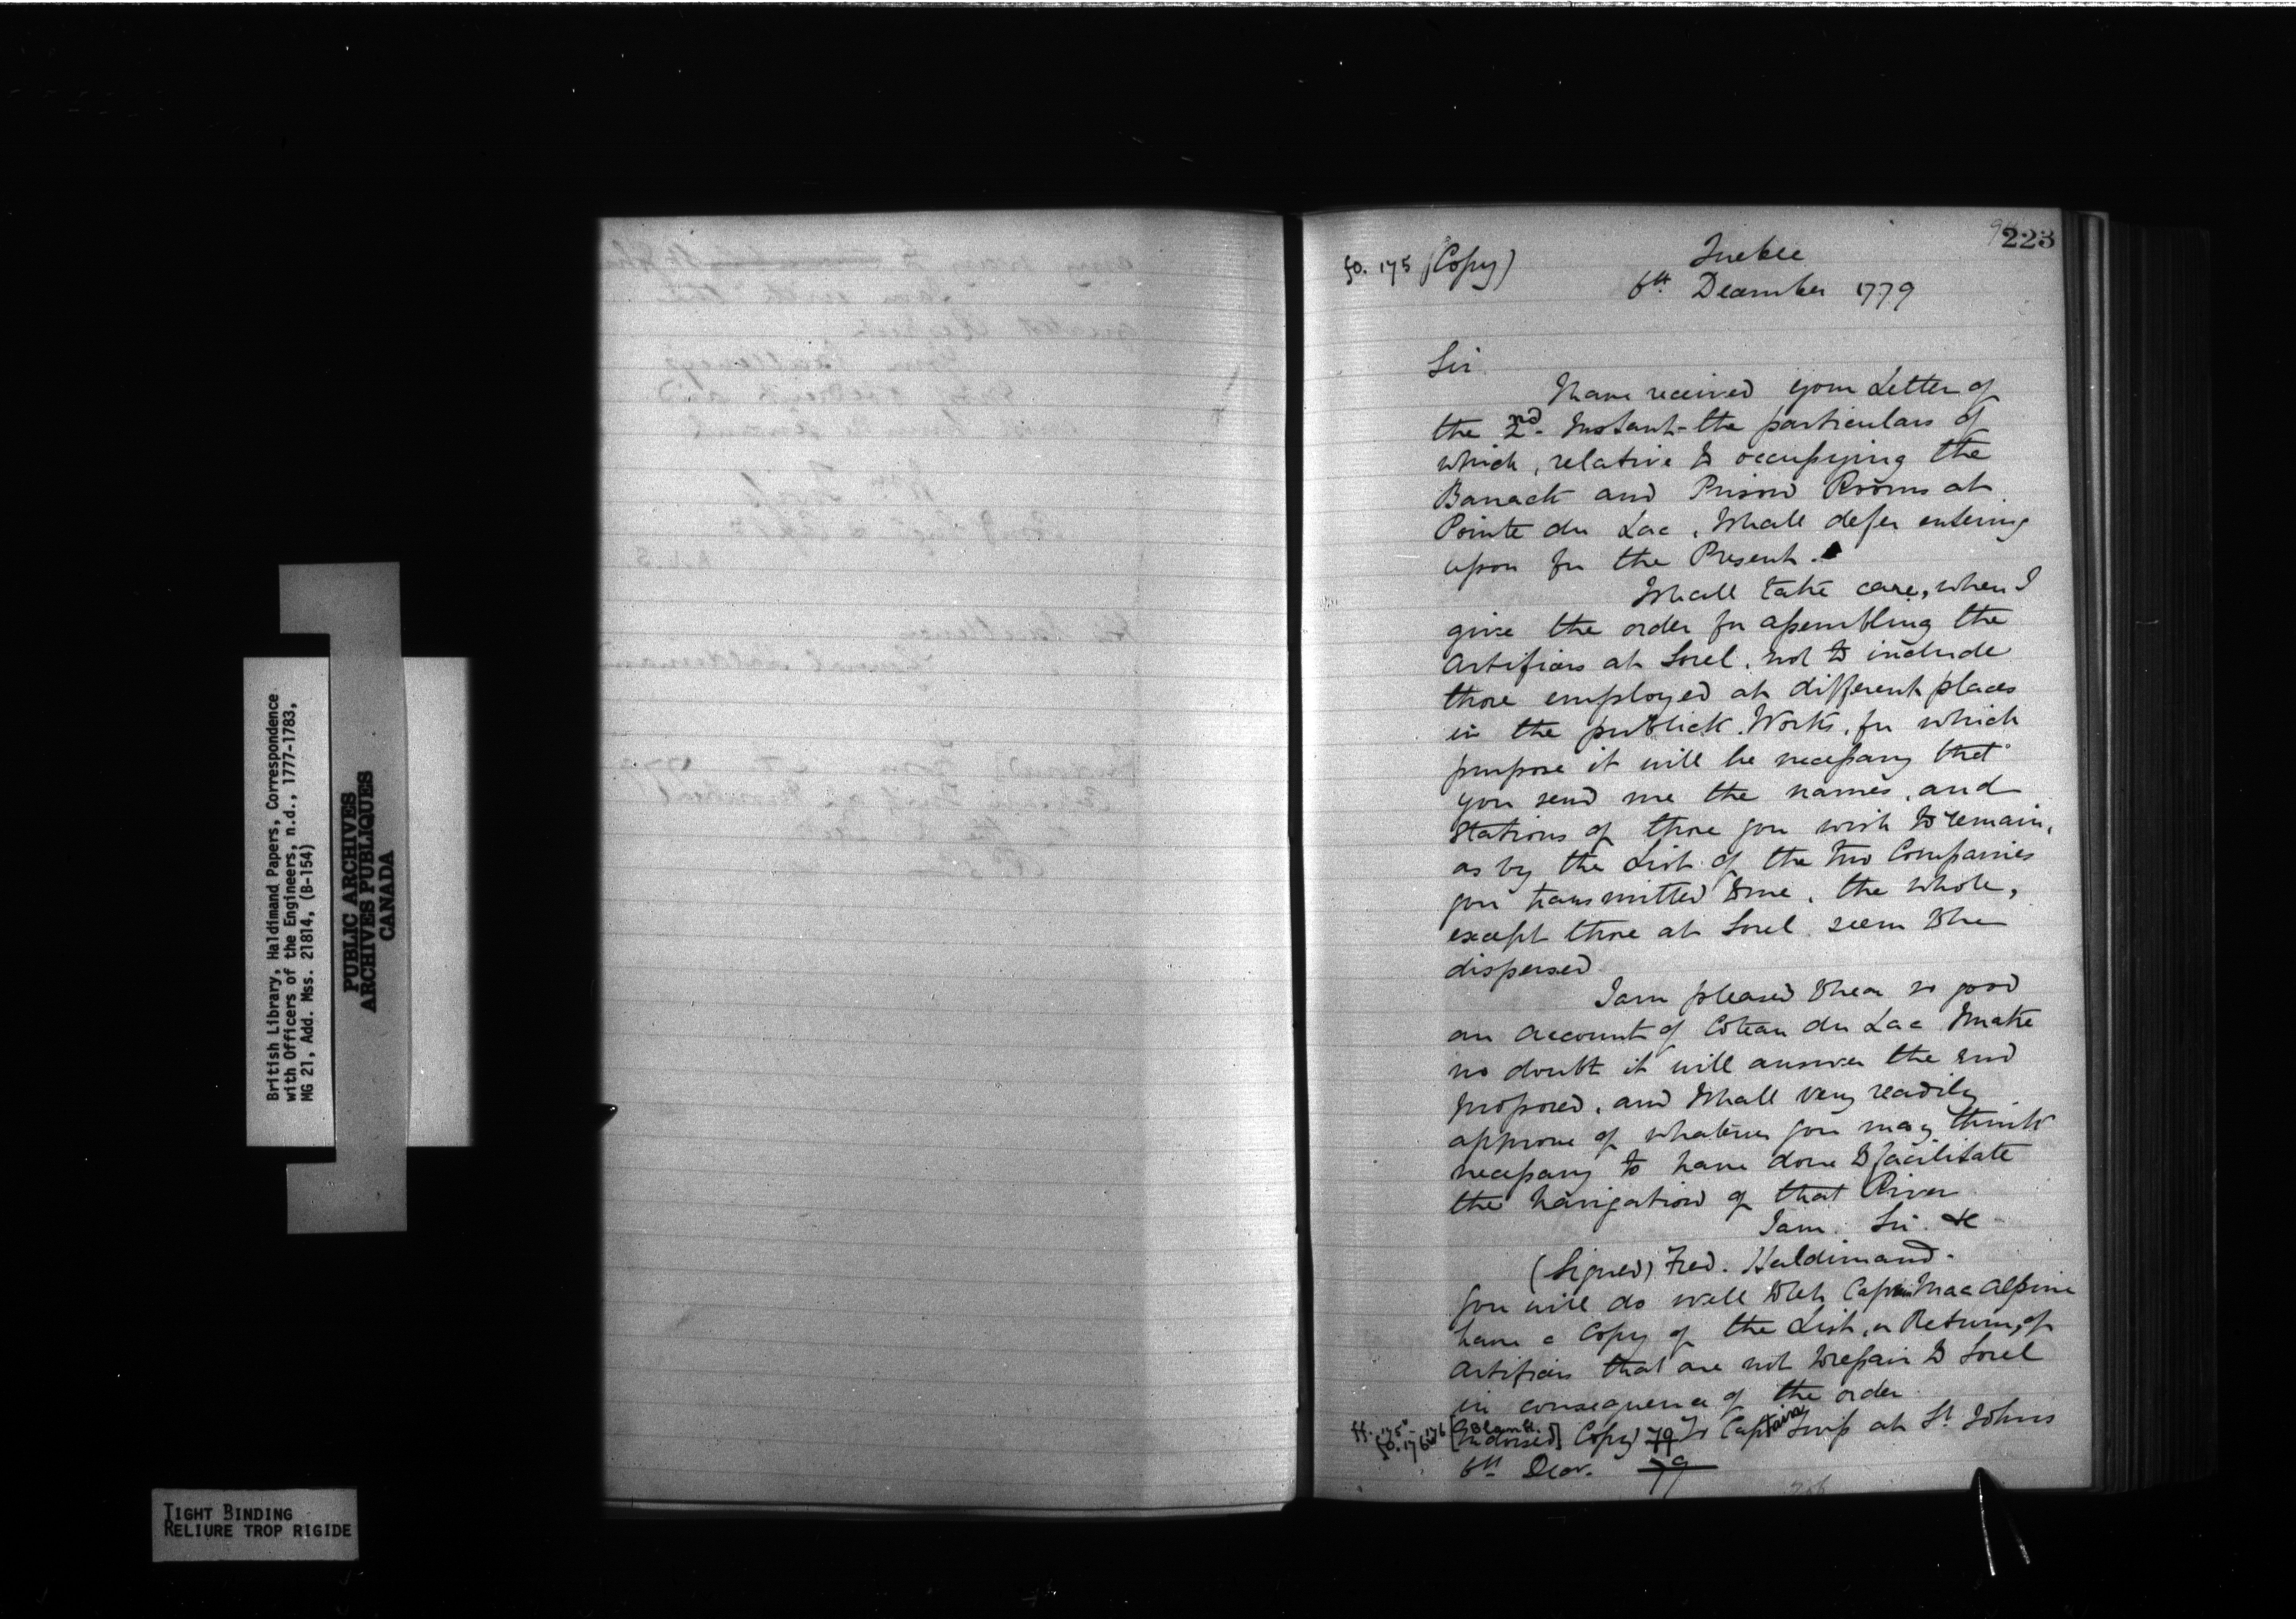 British Library, Haldimand Papers, Correspondence
with Officers of the Engineers, n.d., 1777-1783,
MG 21, Add. Mss. 21814, (B-154)
PUBLIC ARCHIVES
ARCHIVES PUBLIQUES
CANADA
TIGHT BINDING
RELIURE TROP RIGIDE
223
fo. 175 (Copy)
Quebec
6th December 1779
Sir
I have received your Letter of
the 2nd Instant - the particulars of
which, relative to occupying the
Barrack and Prison Rooms at
Pointe du Lac, I shall defer entering
upon for the Present.
I shall take care, when I
give the order for assembling the
Artificers at Sorel, not to include
those employed at different places
in the publick Works, for which
purpose it will be necessary that
you send me the names, and
Stations of those you wish to remain,
as by the List of the two Companies
you transmitted to me, the whole,
except those at Sorel seem to be
dispersed
I am pleased to hear so good
an account of Coteau du Lac I make
no doubt it will answer the end
proposed, and I shall very readily
approve of whatever you may think
necessary to have done to facilitate
the Navigation of that River
I am Sir &c
(Signed) Fred. Haldimand.
You will do well to let Captain Mac Alpine
have a Copy of the List, or Return, of
Artificers that are not to repair to Sorel
in consequence of the order
ff. 175v - 176 Blank.
fo. 176v [Endorsed] Copy 79 To Captain Twiss at St Johns
6th Decr. 79